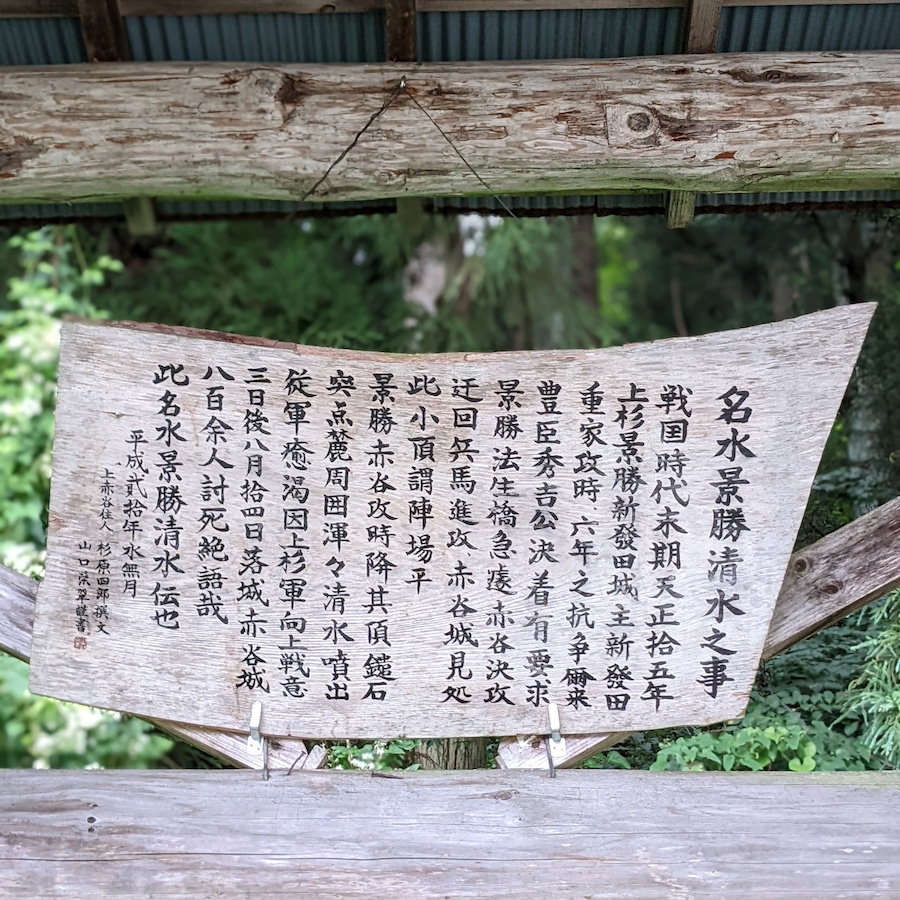 名水景勝清水之事
戦国時代末期天正拾五年
上杉景勝新發田城主新發田
重家攻時六年之抗争爾来
豊臣秀吉公決着有要求
景勝法生橋急遽赤谷決攻
迂回兵馬進攻赤谷城見処
此小頂謂陣場平
景勝赤谷攻時降其頂鑓石
突点麓周囲渾々清水噴出
従軍癒渇因上杉軍向上戦意
三日後八月拾四日落城赤谷城
八百余人討死絶語哉
此名水景勝清水伝也
平成弐拾年水無月
上赤谷住人 杉原四郎撰文
山口